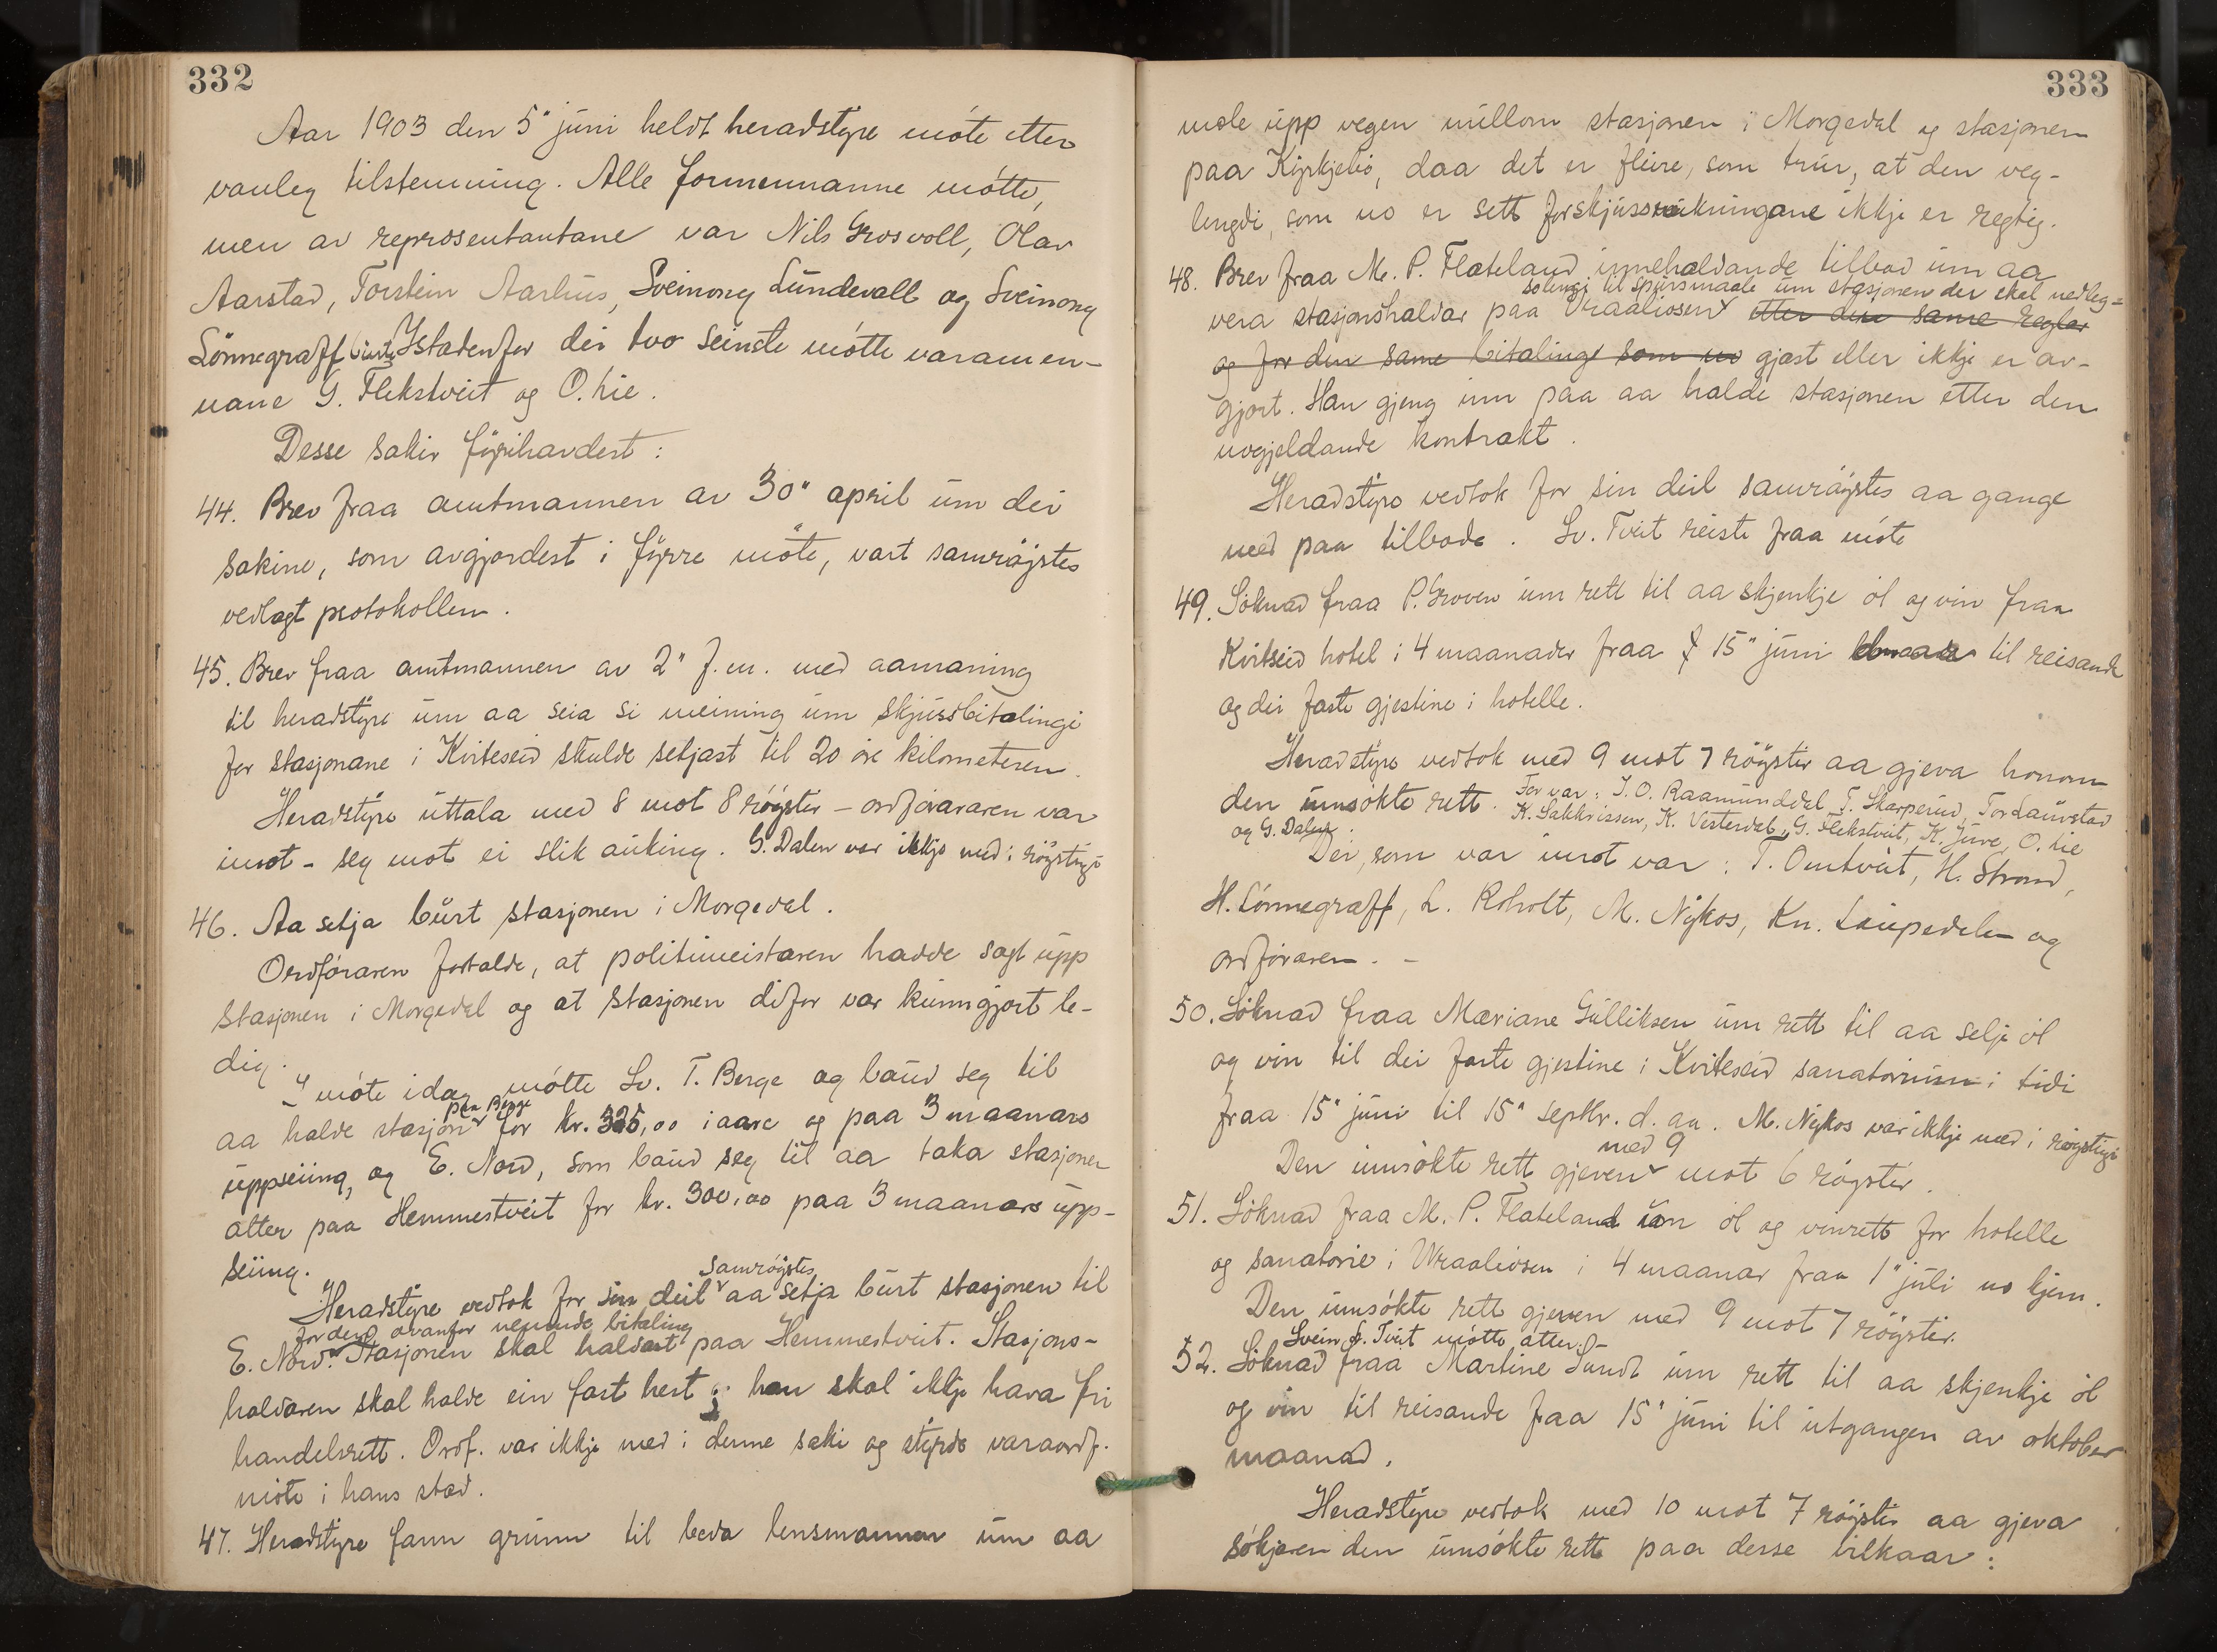 332
Aar 1903 den 5" juni heldt heradstyre möte etter
vanleg tilstemning. Alle formennanne mötte,
men av representantane var Nils Grosvoll, Olav
Aarstad, Torstein Aarhus, Sveinong Lundevall og Sveinong
Lönnegraff burte Istadenfor dei tvo seinste mötte varamen-
nane G. Flekstveit og O. Lie.
Desse sakir fyrihavdest:
44. Brev fraa amtmannen av 30" april um dei
sakine, som avgjordest i fyrre möte, vart samröystes
vedlagt protokollen.
45. Brev fraa amtmannen av 2" f.m. med aamaning
til heradstyre um aa seia si meining um skjussbitalingi
for stasjonane i Kviteseid skulde setjast til 20 öre kilometeren.
Heradstyre uttala med 8 mot 8 röyster – ordföraren var
imot – seg mot ei slik auking. G. Dalen var ikkje med i röystingi
46. Aa setja burt stasjonen i Morgedal.
Ordföraren fortalde, at politimeistaren hadde sagt upp
stasjonen i Morgedal og at stasjonen difor var kunngjort le-
dig.
I möte idag mötte Sv. T. Berge og baud seg til
paa Berge
aa halde stasjon for kr. 325,00 i aaret og paa 3 maanars
uppseiing, og E. Nord, som baud seg til aa taka stasjonen
atter paa Hemmestveit for kr. 300,00 paa 3 maanars upp-
seiing.
samröystes
Heradstyre vedtok for sin deil aa setja burt stasjonen til
for den ovanfor nemnde bitaling
E. Nord. Stasjonen skal haldast paa Hemmestveit. Stasjons-
haldaren skal halde ein fast hest; han skal ikkje hava fri
handelsrett. Ordf. var ikkje med i denne saki og styrde varaordf.
möte i hans stad.
47. Heradstyre fann grunn til beda lensmannen um aa
333
mæle upp vegen millom stasjonen i Morgedal og stasjonen
paa Kyrkjebö, daa det er fleire, som trur, at den veg-
lengdi, som no er sett for skjussrekningane ikkje er regtig.
48. Brev fraa M. P. Flateland innehaldande tilbod um aa
solengi til spursmaale um stasjonen der skal nedleg-
vera stasjonshaldar paa Vraaliosen etter dei same reglar
og for den same bitalingi som no gjast eller ikkje er av-
gjort. Han gjeng inn paa aa halde stasjonen etter den
nogjeldande kontrakt.
Heradstyre vedtok for sin deil samröystes aa gange
med paa tilbode. Sv. Tveit reiste fraa möte
49. Söknad fraa P. Groven um rett til aa skjenkje öl og vin fraa
Kvitseid hotel i 4 maanader fraa 15" juni til reisande
og dei faste gjestine i hotelle.
Heradstyre vedtok med 9 mot 7 röyster aa gjeva honom
den umsökte rett. For var: J. O. Raamunddal, T. Skarperud, Tor Laurstad
K. Sakkrissen, K. Vesterdal, G. Flekstveit, K. Juve, O. Lie
og G. Dalen.
Dei, som var imot var: T. Omtveit, H. Strand,
H. Lönnegraff, L. Roholt, M. Nykos, Kn. Laupedalen og
ordföraren. –
50. Söknad fraa Mariane Gulliksen um rett til aa selje öl
og vin til dei faste gjestine i Kviteseid sanatorium i tidi
fraa 15" juni til 15" septbr. d. aa. M. Nykos var ikkje med i röystingi
med 9
Den umsökte rett gjeven mot 6 röyster.
51. Söknad fraa M. P. Flateland um öl og vinrett for hotelle
og sanatorie i Vraaliosen i 4 maanar fraa 1" juli no kjem.
Den umsökte rett gjeven med 9 mot 7 röyster.
Svein S. Tveit mötte atter. –
52. Söknad fraa Martine Sundt um rett til aa skjenkje öl
og vin til reisande fraa 15" juni til utgangen av oktober
maanad.
Heradstyre vedtok med 10 mot 7 röyster aa gjeva
sökjaren den umsökte rett paa desse vilkaar: